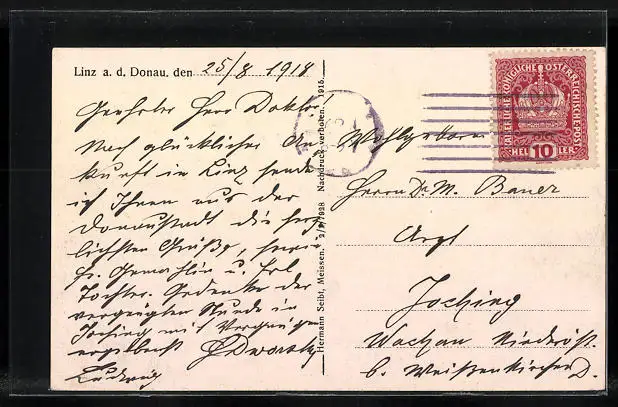 Linz a. d. Donau, den 25/8 1918
Geehrter Herr Doktor!
Nach glücklicher An
kunft in Linz sende
ich Ihnen aus der
Donaustadt die herz
lichsten Grüße, sowie
Fr. Gemahlin u. Frl.
Tochter. Gedenke der
vergnügten Stunde in
Joching mit Vergnügen
ergebenst
Ludwig
Hermann Seibt, Meissen. Nachdruck verboten. 1915.
KAISERLICHE KÖNIGLICHE ÖSTERREICHISCHE POST
HELLER 10
Wohlgeboren
Herrn Dr. M. Bauer
Arzt
Joching
Wachau Niederöst.
b. Weissenkirchen